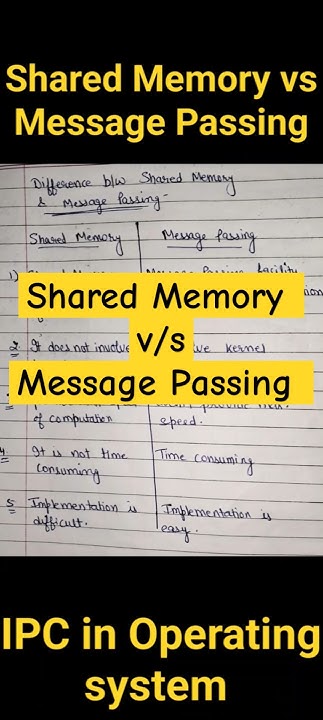 Shared Memory vs
Message Passing
Difference b/w Shared Memory
& Message Passing-
Shared Memory
Message Passing
1)
Message Passing facility
Shared Memory
v/s
Message Passing
2. It does not involve
kernel
of computation
speed.
4 It is not time
consuming
Time consuming
5 Implementation is
difficult.
Implementation is
easy.
IPC in Operating
system